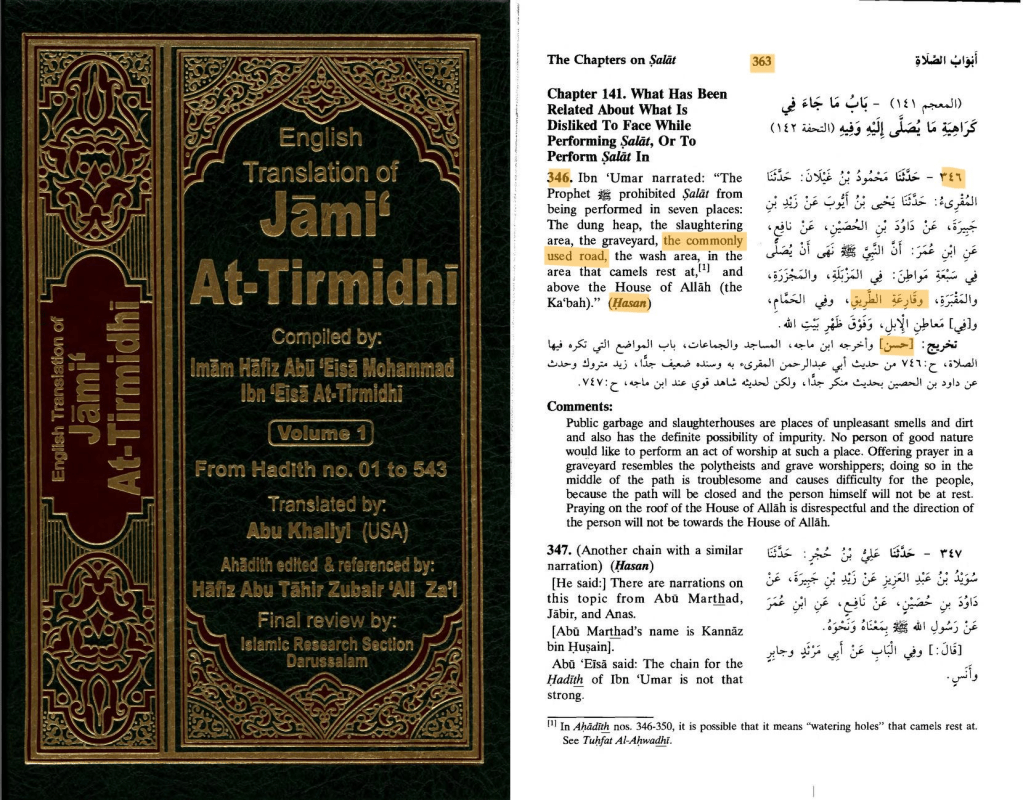 English Translation of
Jāmi‘
At-Tirmidhī
English
Translation of
Jāmi‘
At-Tirmidhī
Compiled by:
Imām Hāfiz Abū ‘Eisā Mohammad
Ibn ‘Eisā At-Tirmidhī
Volume 1
From Hadith no. 01 to 543
Translated by:
Abu Khaliyl (USA)
Ahādith edited & referenced by:
Hāfiz Abu Tāhir Zubair ‘Ali Za'i
Final review by:
Islamic Research Section
Darussalam
The Chapters on Ṣalāt 363 أَبْوَابُ الصَّلَاةِ
Chapter 141. What Has Been
Related About What Is
Disliked To Face While
Performing Ṣalāt, Or To
Perform Ṣalāt In
(المعجم ١٤١) - بَابُ مَا جَاءَ فِي
كَرَاهِيَةِ مَا يُصَلَّى إِلَيْهِ وَفِيهِ (التحفة ١٤٢)
346. Ibn ‘Umar narrated: “The
Prophet ﷺ prohibited Ṣalāt from
being performed in seven places:
The dung heap, the slaughtering
area, the graveyard, the commonly
used road, the wash area, in the
area that camels rest at,[1] and
above the House of Allāh (the
Ka‘bah).” (Ḥasan)
٣٤٦ - حَدَّثَنَا مَحْمُودُ بْنُ غَيْلَانَ: حَدَّثَنَا
المُقْرِىءُ: حَدَّثَنَا يَحْيَى بْنُ أَيُّوبَ عَنْ زَيْدِ بْنِ
جَبِيرَةَ، عَنْ دَاوُدَ بْنِ الحُصَيْنِ، عَنْ نافِعٍ،
عَنِ ابْنِ عُمَرَ: أَنَّ النَّبِيَّ ﷺ نَهَى أَنْ يُصَلَّى
فِي سَبْعَةِ مَواطِنَ: فِي المَزْبَلَةِ، والمَجْزَرَةِ،
والمَقْبُرَةِ، وقَارِعَةِ الطَّرِيقِ، وفي الحَمَّامِ،
و[في] مَعاطِنِ الإبِلِ، وَفَوْقَ ظَهْرِ بَيْتِ الله.
تخريج: [حسن] وأخرجه ابن ماجه، المساجد والجماعات، باب المواضع التي تكره فيها
الصلاة، ح:٧٤٦ من حديث أبي عبدالرحمن المقرىء به وسنده ضعيف جدًّا، زيد متروك وحدث
عن داود بن الحصين بحديث منكر جدًّا، ولكن لحديثه شاهد قوي عند ابن ماجه، ح:٧٤٧.
Comments:
Public garbage and slaughterhouses are places of unpleasant smells and dirt
and also has the definite possibility of impurity. No person of good nature
would like to perform an act of worship at such a place. Offering prayer in a
graveyard resembles the polytheists and grave worshippers; doing so in the
middle of the path is troublesome and causes difficulty for the people,
because the path will be closed and the person himself will not be at rest.
Praying on the roof of the House of Allāh is disrespectful and the direction of
the person will not be towards the House of Allāh.
347. (Another chain with a similar
narration) (Ḥasan)
[He said:] There are narrations on
this topic from Abū Marthad,
Jābir, and Anas.
[Abū Marthad's name is Kannāz
bin Ḥuṣain].
Abū ‘Eīsā said: The chain for the
Ḥadīth of Ibn ‘Umar is not that
strong.
٣٤٧ - حَدَّثَنَا عَلِيُّ بْنُ حُجْرٍ: حَدَّثَنَا
سُوَيْدُ بْنُ عَبْدِ العَزِيزِ عَنْ زَيْدِ بْنِ جَبِيرَةَ، عَنْ
دَاوُدَ بنِ حُصَيْنٍ، عَنْ نافِعٍ، عَنِ ابْنِ عُمَرَ
عَنْ رَسُولِ الله ﷺ بِمَعْنَاهُ وَنَحْوَهُ.
[قَالَ:] وفي الْبَابِ عَنْ أبي مَرْثَدٍ وجابِرٍ
وأنَسٍ.
[1] In Aḥādīth nos. 346-350, it is possible that it means “watering holes” that camels rest at.
See Tuḥfat Al-Aḥwadhī.